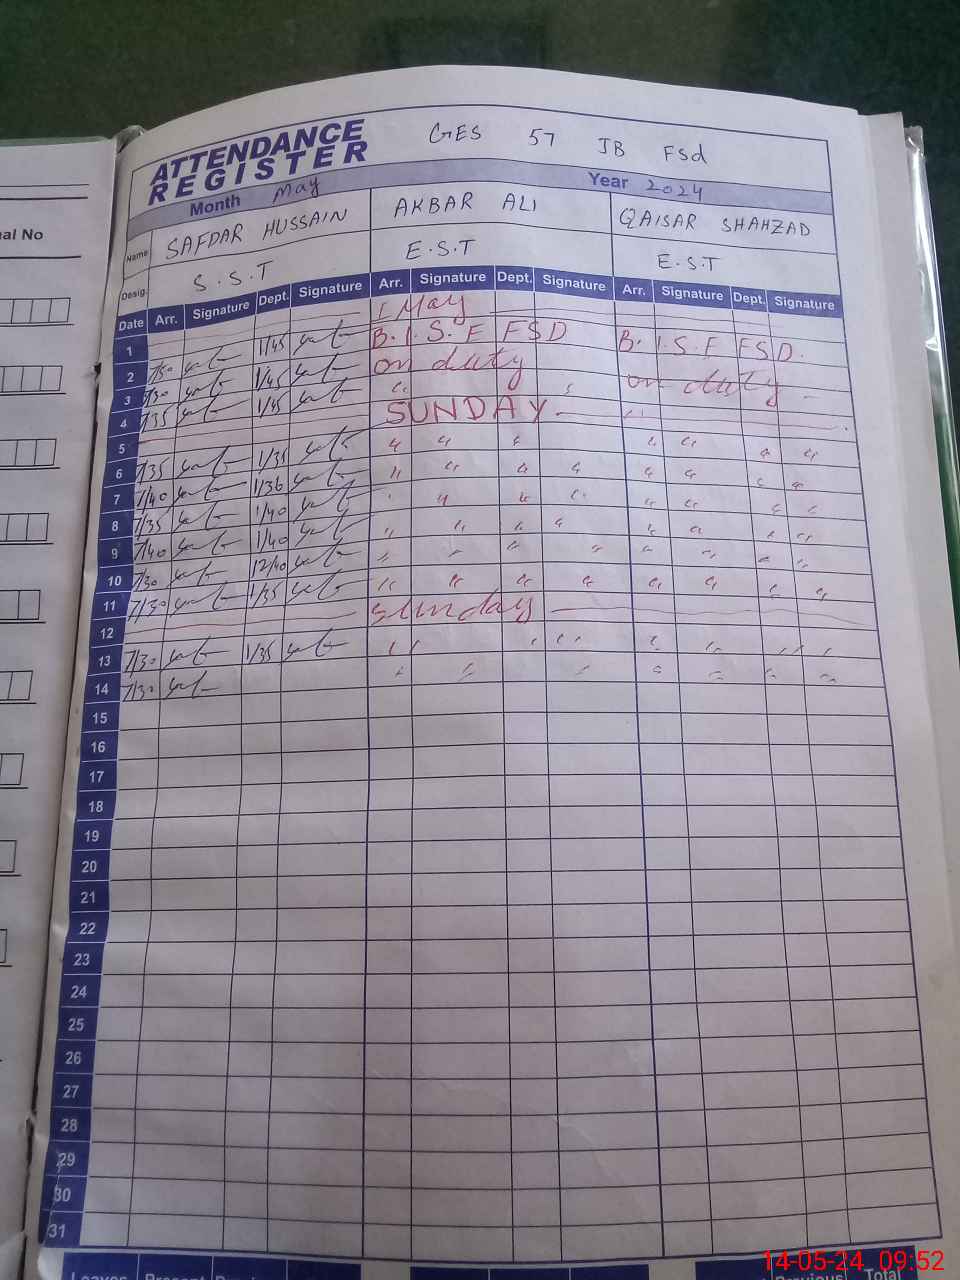 ATTENDANCE REGISTER GES 57 JB Fsd
Month May Year 2024
al No
Name SAFDAR HUSSAIN AKBAR ALI QAISAR SHAHZAD
Desig. S.S.T E.S.T E.S.T
Date Arr. Signature Dept. Signature Arr. Signature Dept. Signature Arr. Signature Dept. Signature
1 1 May
2 7/30 1/45 B.I.S.E FSD B.I.S.E FSD.
3 7/30 1/45 on duty on duty
4 7/35 1/45 " "
5 SUNDAY
6 7/35 1/35 " " " " " " "
7 7/40 1/36 " " " " " " " "
8 7/35 1/40 " " " " " " " "
9 7/40 1/40 " " " " " " " "
10 7/30 12/40 " " " " " " " "
11 7/30 1/35 " " " " " " " "
12 Sunday
13 7/30 1/35 " " " " " " "
14 7/30 " " " " " " "
15
16
17
18
19
20
21
22
23
24
25
26
27
28
29
30
31
Leaves Present Previous Total
14-05-24 09:52